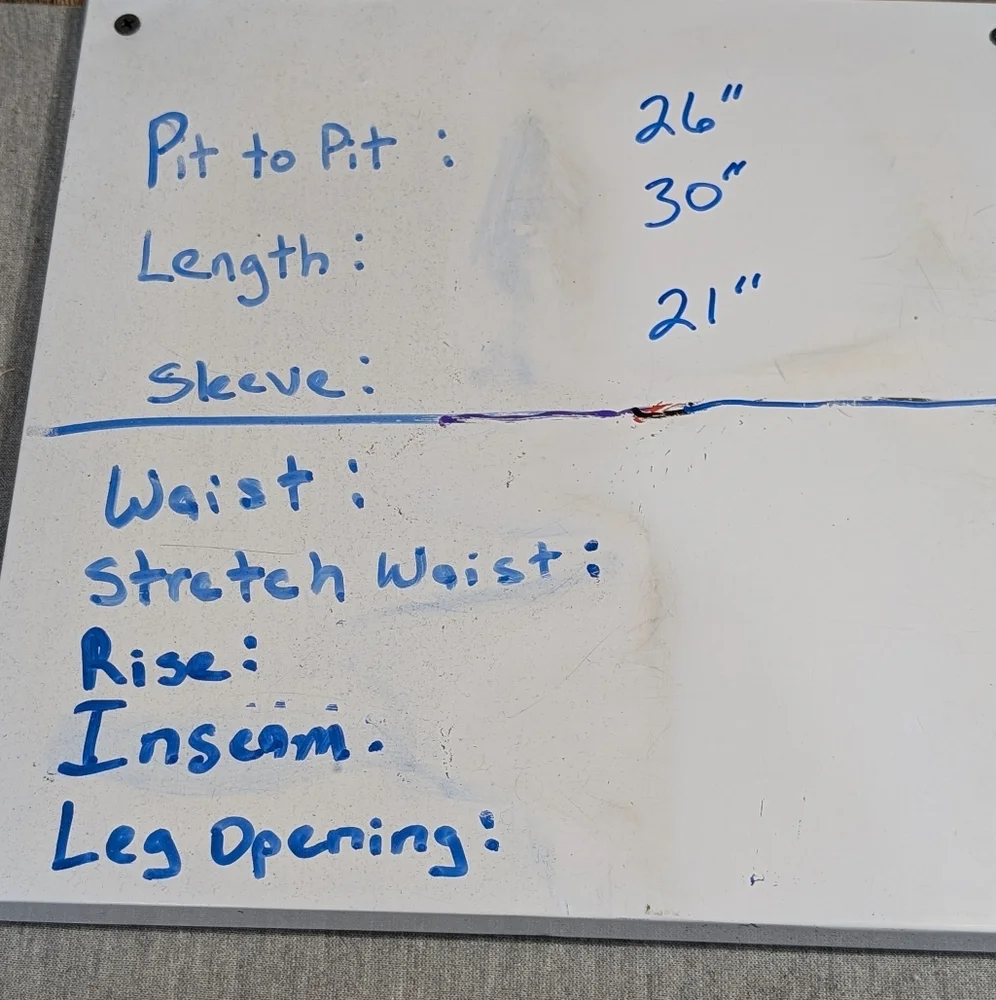 Pit to Pit : 26"
Length : 30"
Sleeve : 21"
Waist :
Stretch Waist :
Rise :
Inseam.
Leg Opening :